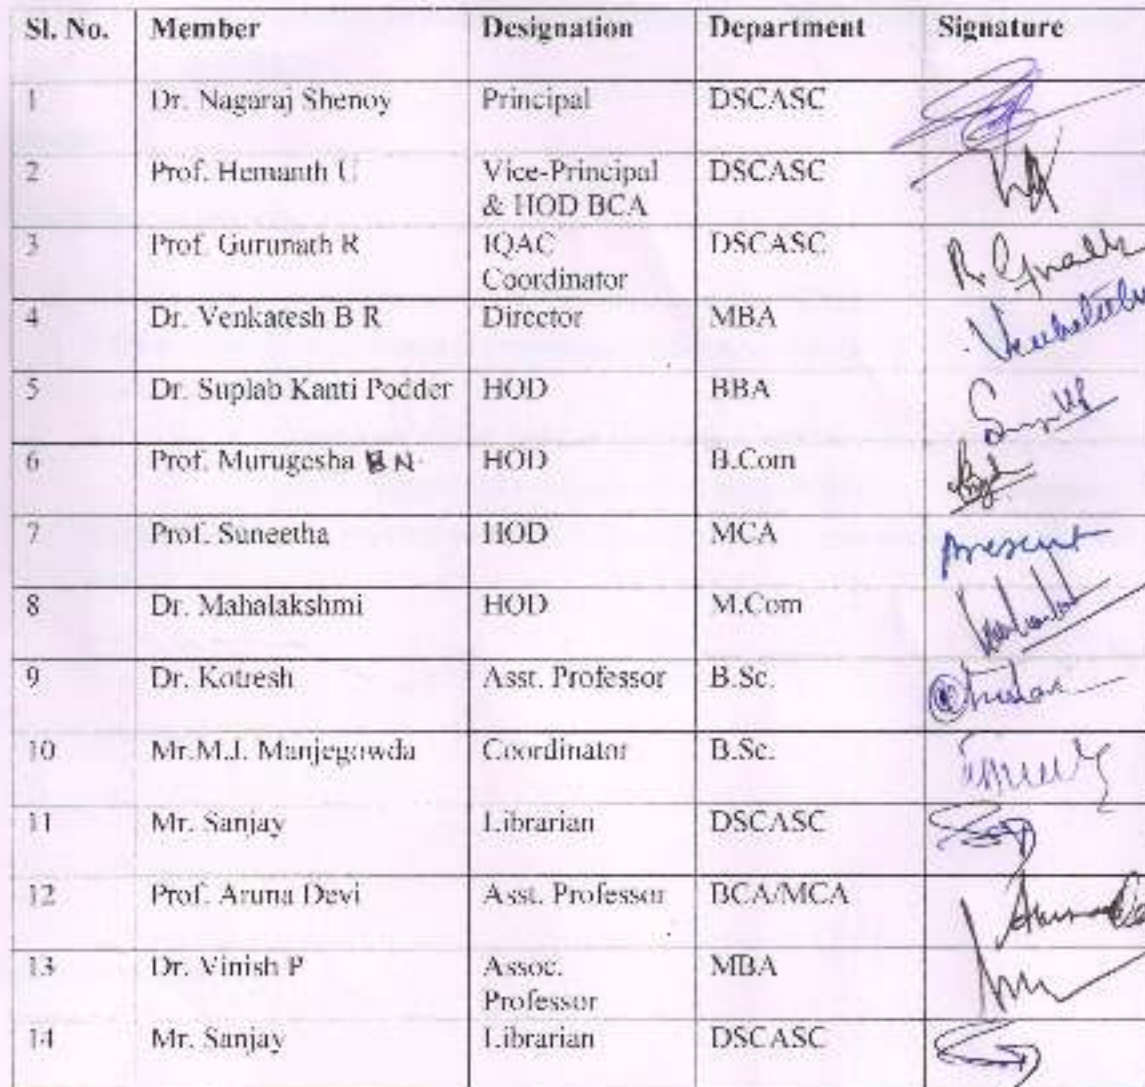 Sl. No. Member Designation Department Signature
1 Dr. Nagaraj Shenoy Principal DSCASC
2 Prof. Hemanth U Vice-Principal DSCASC
& HOD BCA
3 Prof. Gurunath R IQAC DSCASC
Coordinator
4 Dr. Venkatesh B R Director MBA
5 Dr. Suplab Kanti Podder HOD BBA
6 Prof. Murugesha B N. HOD B.Com
7 Prof. Suneetha HOD MCA present
8 Dr. Mahalakshmi HOD M.Com
9 Dr. Kotresh Asst. Professor B.Sc.
10 Mr.M.J. Manjegowda Coordinator B.Sc.
11 Mr. Sanjay Librarian DSCASC
12 Prof. Aruna Devi Asst. Professor BCA/MCA
13 Dr. Vinish P Assoc. MBA
Professor
14 Mr. Sanjay Librarian DSCASC